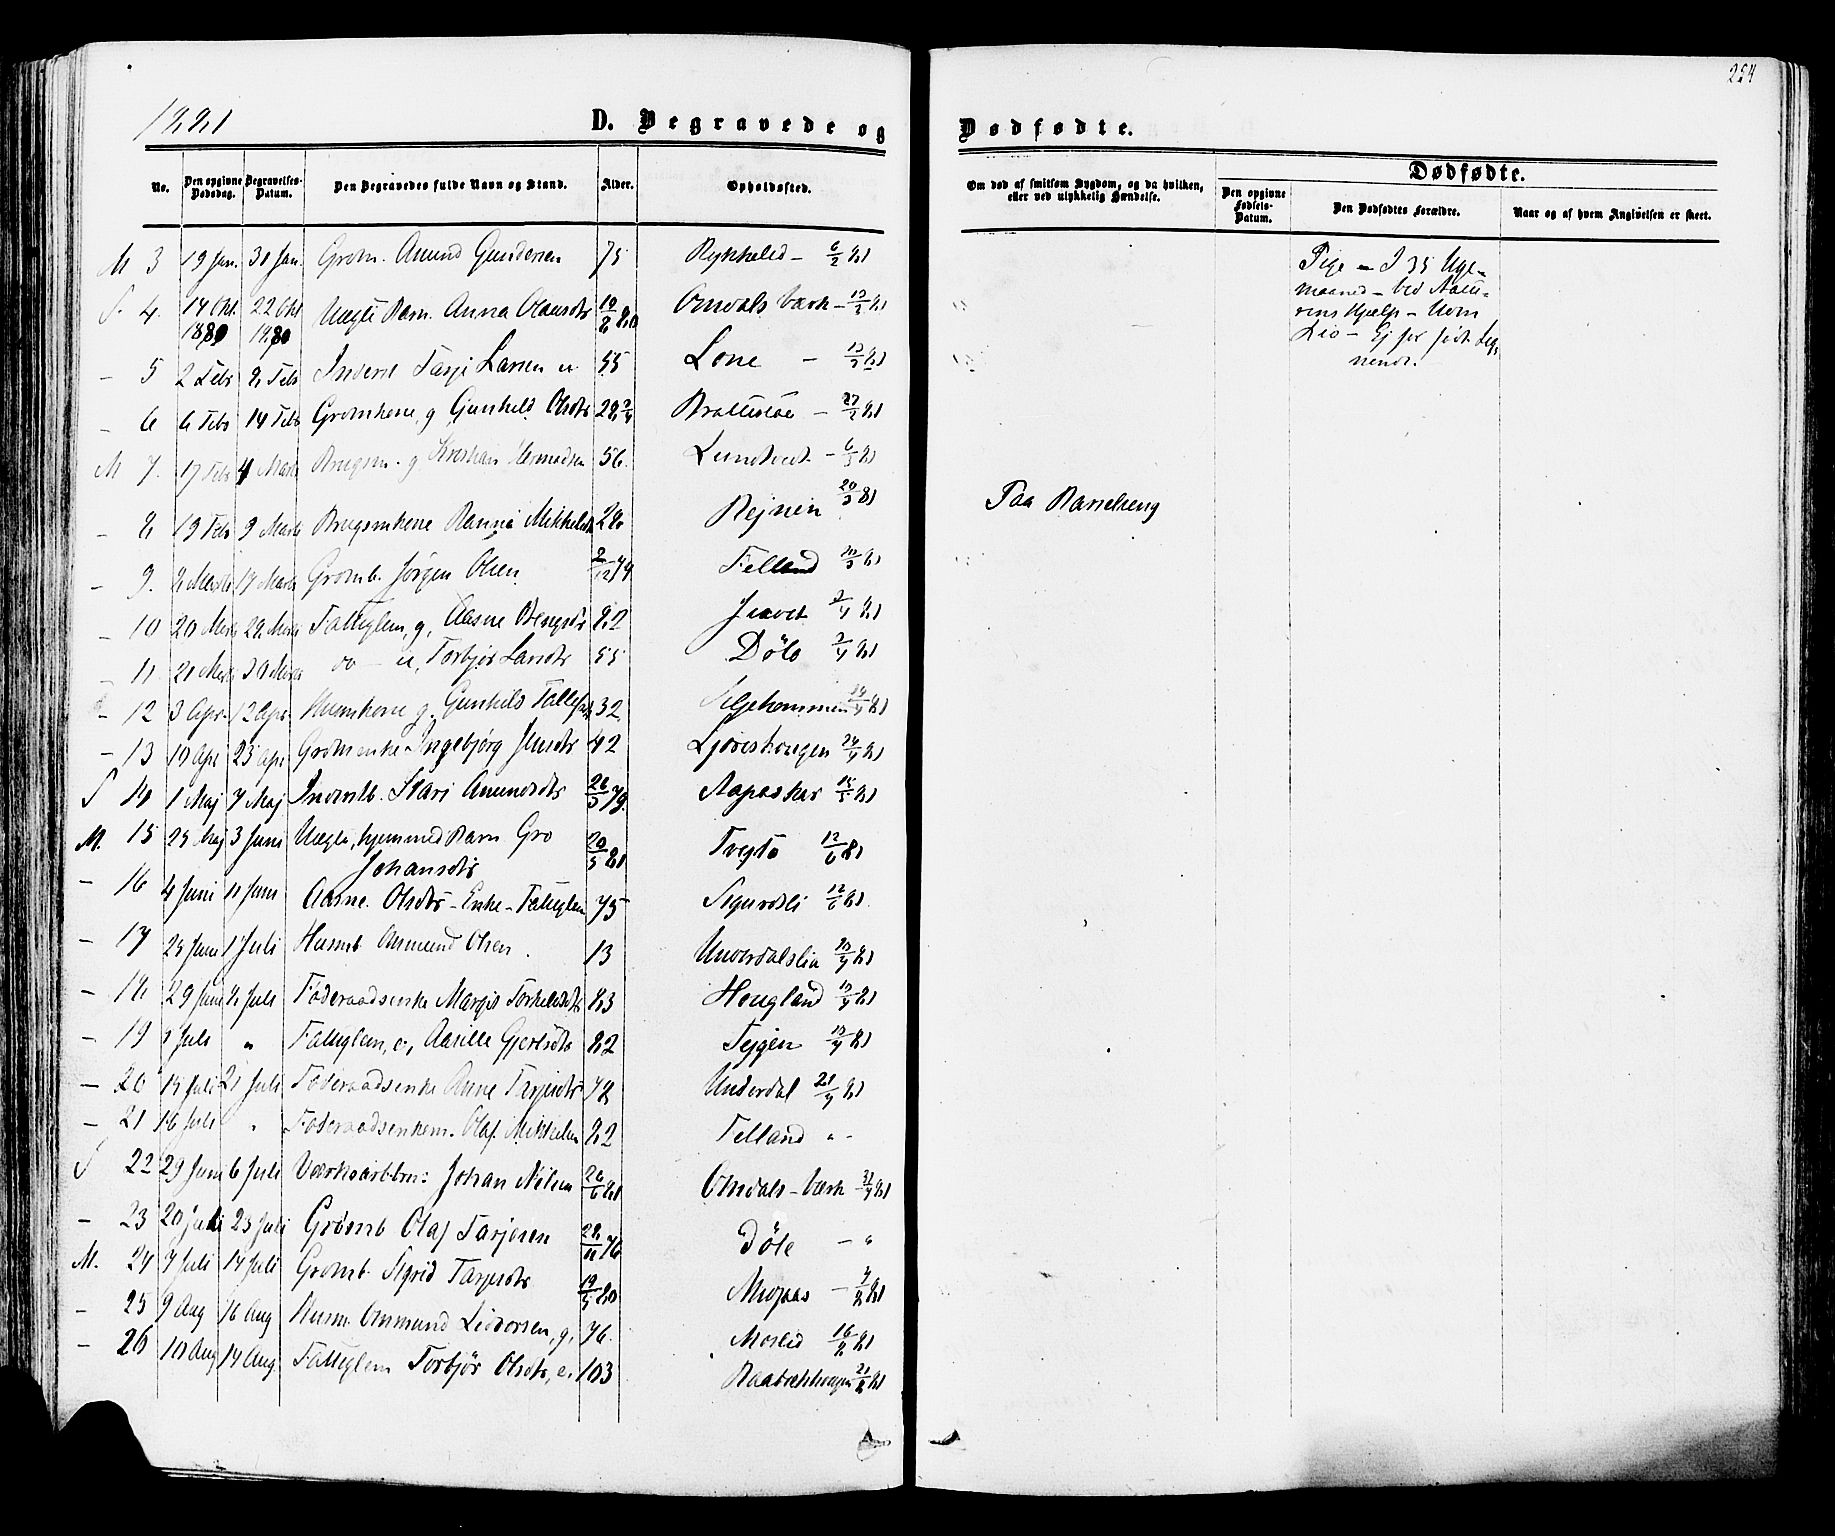 254
1881
D. Begravede og Dødfødte.
No. Den opgivne Dødsdag. Begravelses-Datum. Den Begravedes fulde Navn og Stand. Alder. Opholdssted.
Om død af smitsom Sygdom, og da hvilken, eller ved ulykkelig Hændelse.
Dødfødte.
Den opgivne Fødsels-Datum. Den Dødfødtes Forældre. Naar og af hvem Angivelsen er skeet.
M 3 19 Jan. 30 Jan. Grdm. Amund Gundersen 75 Rykkelid - 6/2 81
S. 4. 14 Okt 1880 22 Okt 1880 Uægte Barn. Anna Olausdtr 10/8 80 Omdals Værk - 13/2 81
- 5 2 Febr 8 Feb Inderst Tarje Larsen u 55 Lone - 13/2 81
- 6 6 Febr 14 Febr Grdmkone, g Gunhild Olsdtr 28 Brattestøe - 27/2 81
M 7. 17 Febr 4 Marts Brugsm. g Kristian 56. Lundtvedt - 6/3 81
- 8 19 Febr 9 Marts Brugsmkone Mikkelsdtr 28 Rejnen 20/3 81 Paa Barselseng
- 9. 8 Marts 17 Marts Grdmb. Jørgen Olsen 2/12 79 Felland 81
- 10 20 Marts 29 Marts Fattiglem, g, Aasne Bengtsdtr 82 3/4 81
- 11 Marts 30 Marts do - u, Torbjør Larsdtr 55 Døle 3/4 81
- 12 3 Apr. 12 Apr. Husmkone g. Gunhild Tallefsdtr 32 81
- 13 19 Apr 25 Apr Grdmenke Ingebjørg Jensdtr 42 24/4 81
S 14 1 Maj 7 Maj Inderstb. Kari Amundsdtr 26/5 79. Aapaskar 15/5 81
M. 15 25 Maj 3 Juni Uægte, hjemmed Barn Gro
Johansdtr 20/5 81 Tvejto 12/6 81
- 16 4 Juni 11 Juni Aasne Olsdtr - Enke - Fattiglem 75 Sigurdsli 12/6 81
- 17 25 Juni 1 Juli Husmb. Aamund Olsen. 13 Underdalslia 10/7 81
- 18 29 Juni 8 Juli Føderaadsenke Margit Torkelsdtr 83 Hougland 10/7 81
- 19 1 Juli " Fattiglem, e, Aasille Gjertsdtr 82 Tejgen 10/7 81
- 20 15 Juli 21 Juli Føderaadsenke Anne Tarjesdtr 72 Underdal 21/7 81
- 21 16 Juli " Føderaadsenkem. Olaf Mikkelsen 82 Felland " -
S 22 29 Juni 6 Juli Værksarbbrn: Johan Nilsen 26/6 81 Omdals - Værk 31/7 81
- 23 20 Juli 23 Juli Grdmb Olaf Tarjesen 22/11 76 Døle - "
M. 24 7 Juli 14 Juli Grdmb. Sigrid Tarjesdtr 19/5 80 Mopaas - 7/8 81
- 25 9 Aug 16 Aug Husm. Ommund Lidvorsen, g, 76. Moslid 16/8 81
- 26 10 Aug 14 Aug. Fattiglem Torbjør Olsdtr, e. 103 21/8 81
Pige - I 35 Uge-
maaned - Ved Natu-
rens Hjælp - Uden
Liv - Ej før født